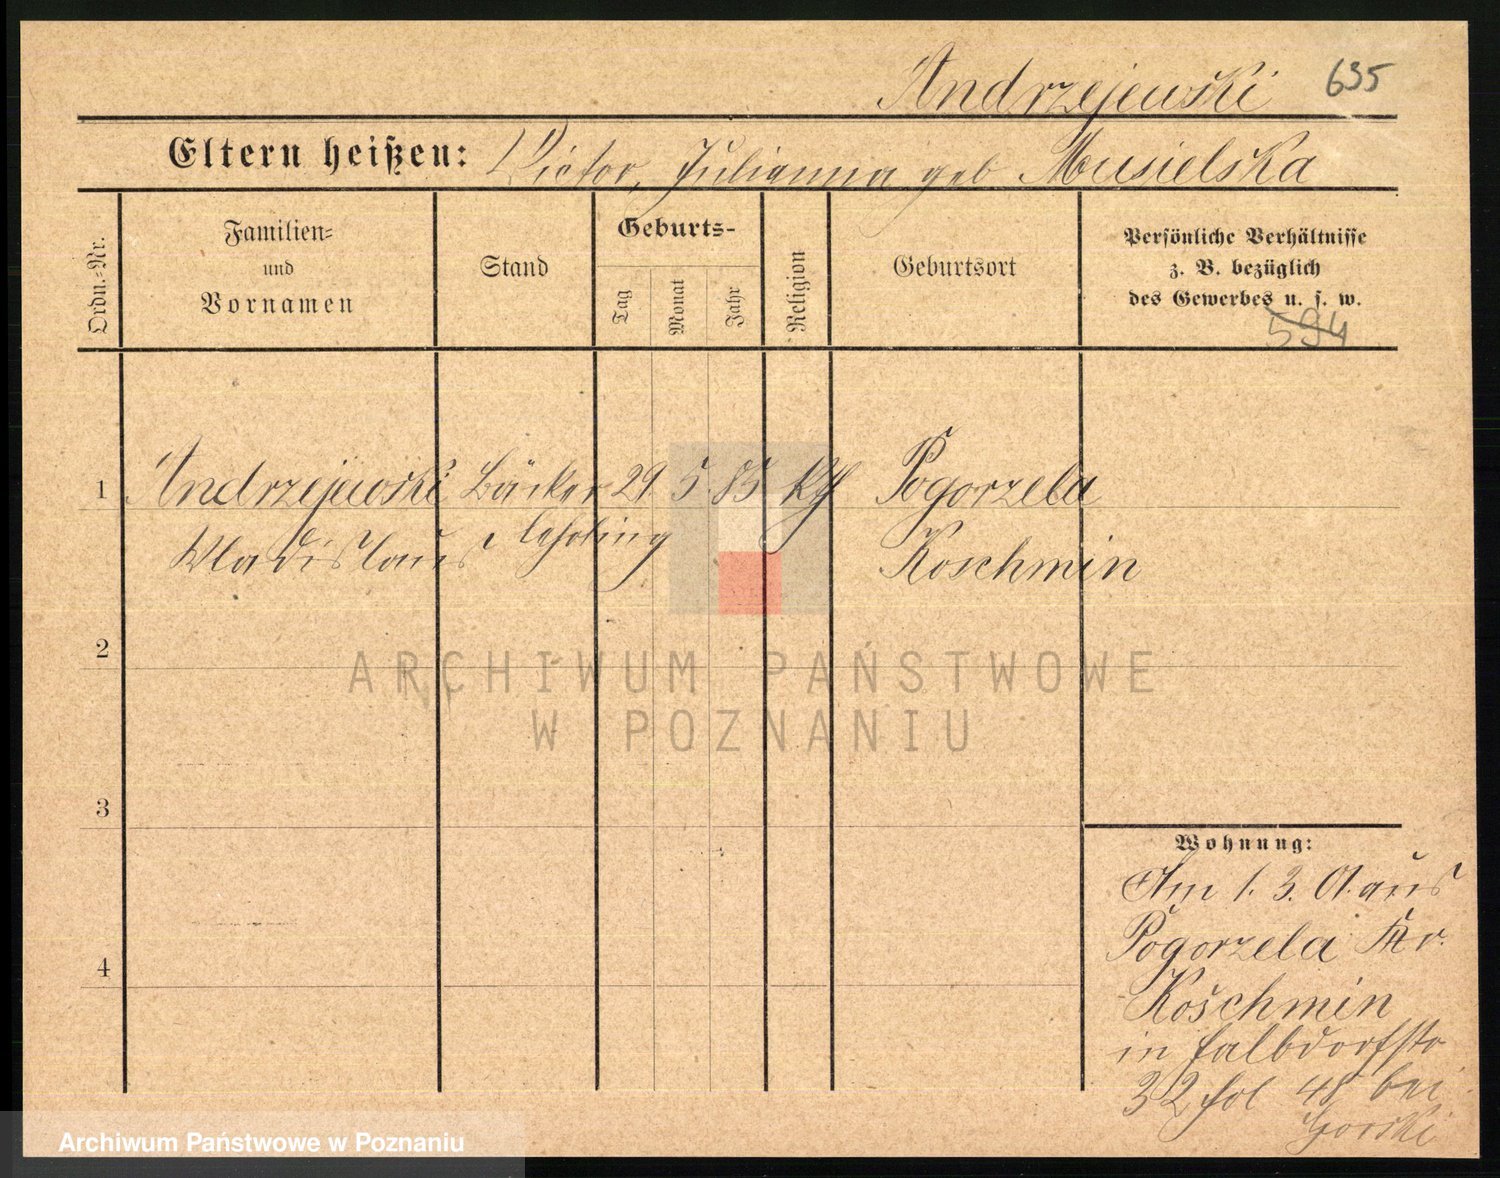 Andrzejewski 635
Eltern heißen: Victor, Julianna geb Musielska
Ordn.-Nr.
Familien-
und
Vornamen
Stand
Geburts-
Tag
Monat
Jahr
Religion
Geburtsort
Persönliche Verhältnisse
z. B. bezüglich
des Gewerbes u. s. w.
594
1 Andrzejewski Bäcker 29. 5. 85 kth Pogorzela
Wladislaus lehrling Koschmin
2
ARCHIWUM PAŃSTWOWE
W POZNANIU
3
4
Wohnung:
Am 1. 3. 01. aus
Pogorzela Kr.
Koschmin
in Halbdorfstr
32 fol 48 bei
Gorski
Archiwum Państwowe w Poznaniu